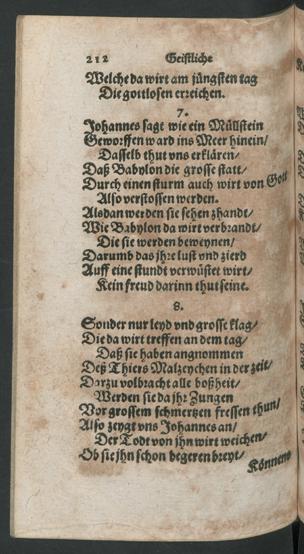 212 Geistliche
Welche da wirt am jüngsten tag
Die gottlosen erreichen.
7.
Johannes sagt wie ein Müllstein
Geworffen ward ins Meer hinein/
Dasselb thut vns erklären/
Daß Babylon die grosse statt/
Durch einen sturm auch wirt von Gott
Also verstossen werden.
Alsdan werden sie sehen zhandt/
Wie Babylon da wirt verbrandt/
Die sie werden beweynen/
Darumb das jhre lust vnd zierd
Auff eine stundt verwüstet wirt/
Kein freud darinn thut seine.
8.
Sonder nur leyd vnd grosse klag/
Die da wirt treffen an dem tag/
Daß sie haben angnommen
Deß Thiers Malzeychen in der zeit/
Darzu volbracht alle boßheit/
Werden sie da jhr Zungen
Vor grossem schmertzen fressen thun/
Also zeygt vns Johannes an/
Der Todt von jhn wirt weichen/
Ob sie jhn schon begeren breyt/
Können